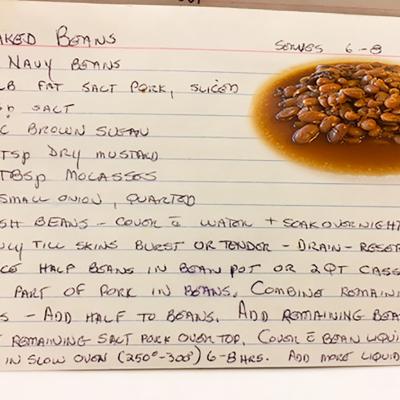 AKED BEANS SERVES 6-8
NAVY BEANS
LB FAT SALT PORK, SLICED
SP SALT
C BROWN SUGAR
TSP DRY MUSTARD
TBSP MOLASSES
SMALL ONION, QUARTED
SH BEANS - COVER C̄ WATER + SOAK OVERNIGHT
TILL SKINS BURST OR TENDER - DRAIN - RESER
CE HALF BEANS IN BEAN POT OR 2QT CASS
PART OF PORK IN BEANS. COMBINE REMAIN
S - ADD HALF TO BEANS. ADD REMAINING BEA
REMAINING SALT PORK OVER TOP. COVER C̄ BEAN LIQUI
IN SLOW OVEN (250°-300°) 6-8 HRS. ADD MORE LIQUID